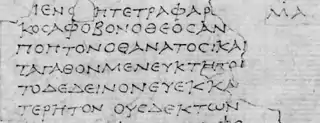 ΜΕΝΟ ΗΤΕΤΡΑΦΑΡ ΜΑ
ΚΟΣΑΦΟΒΟΝΟΘΕΟΣΑΝ
ΠΟΠΤΟΝΟΘΑΝΑΤΟΣΚΑΙ
ΤΑΓΑΘΟΝΜΕΝΕΥΚΤΗΤΟΙ
ΤΟΔΕΔΕΙΝΟΝΕΥΕΚΚΑ
ΤΕΡΗΤΟΝ ΟΥΣΔΕΚΤΩΝ